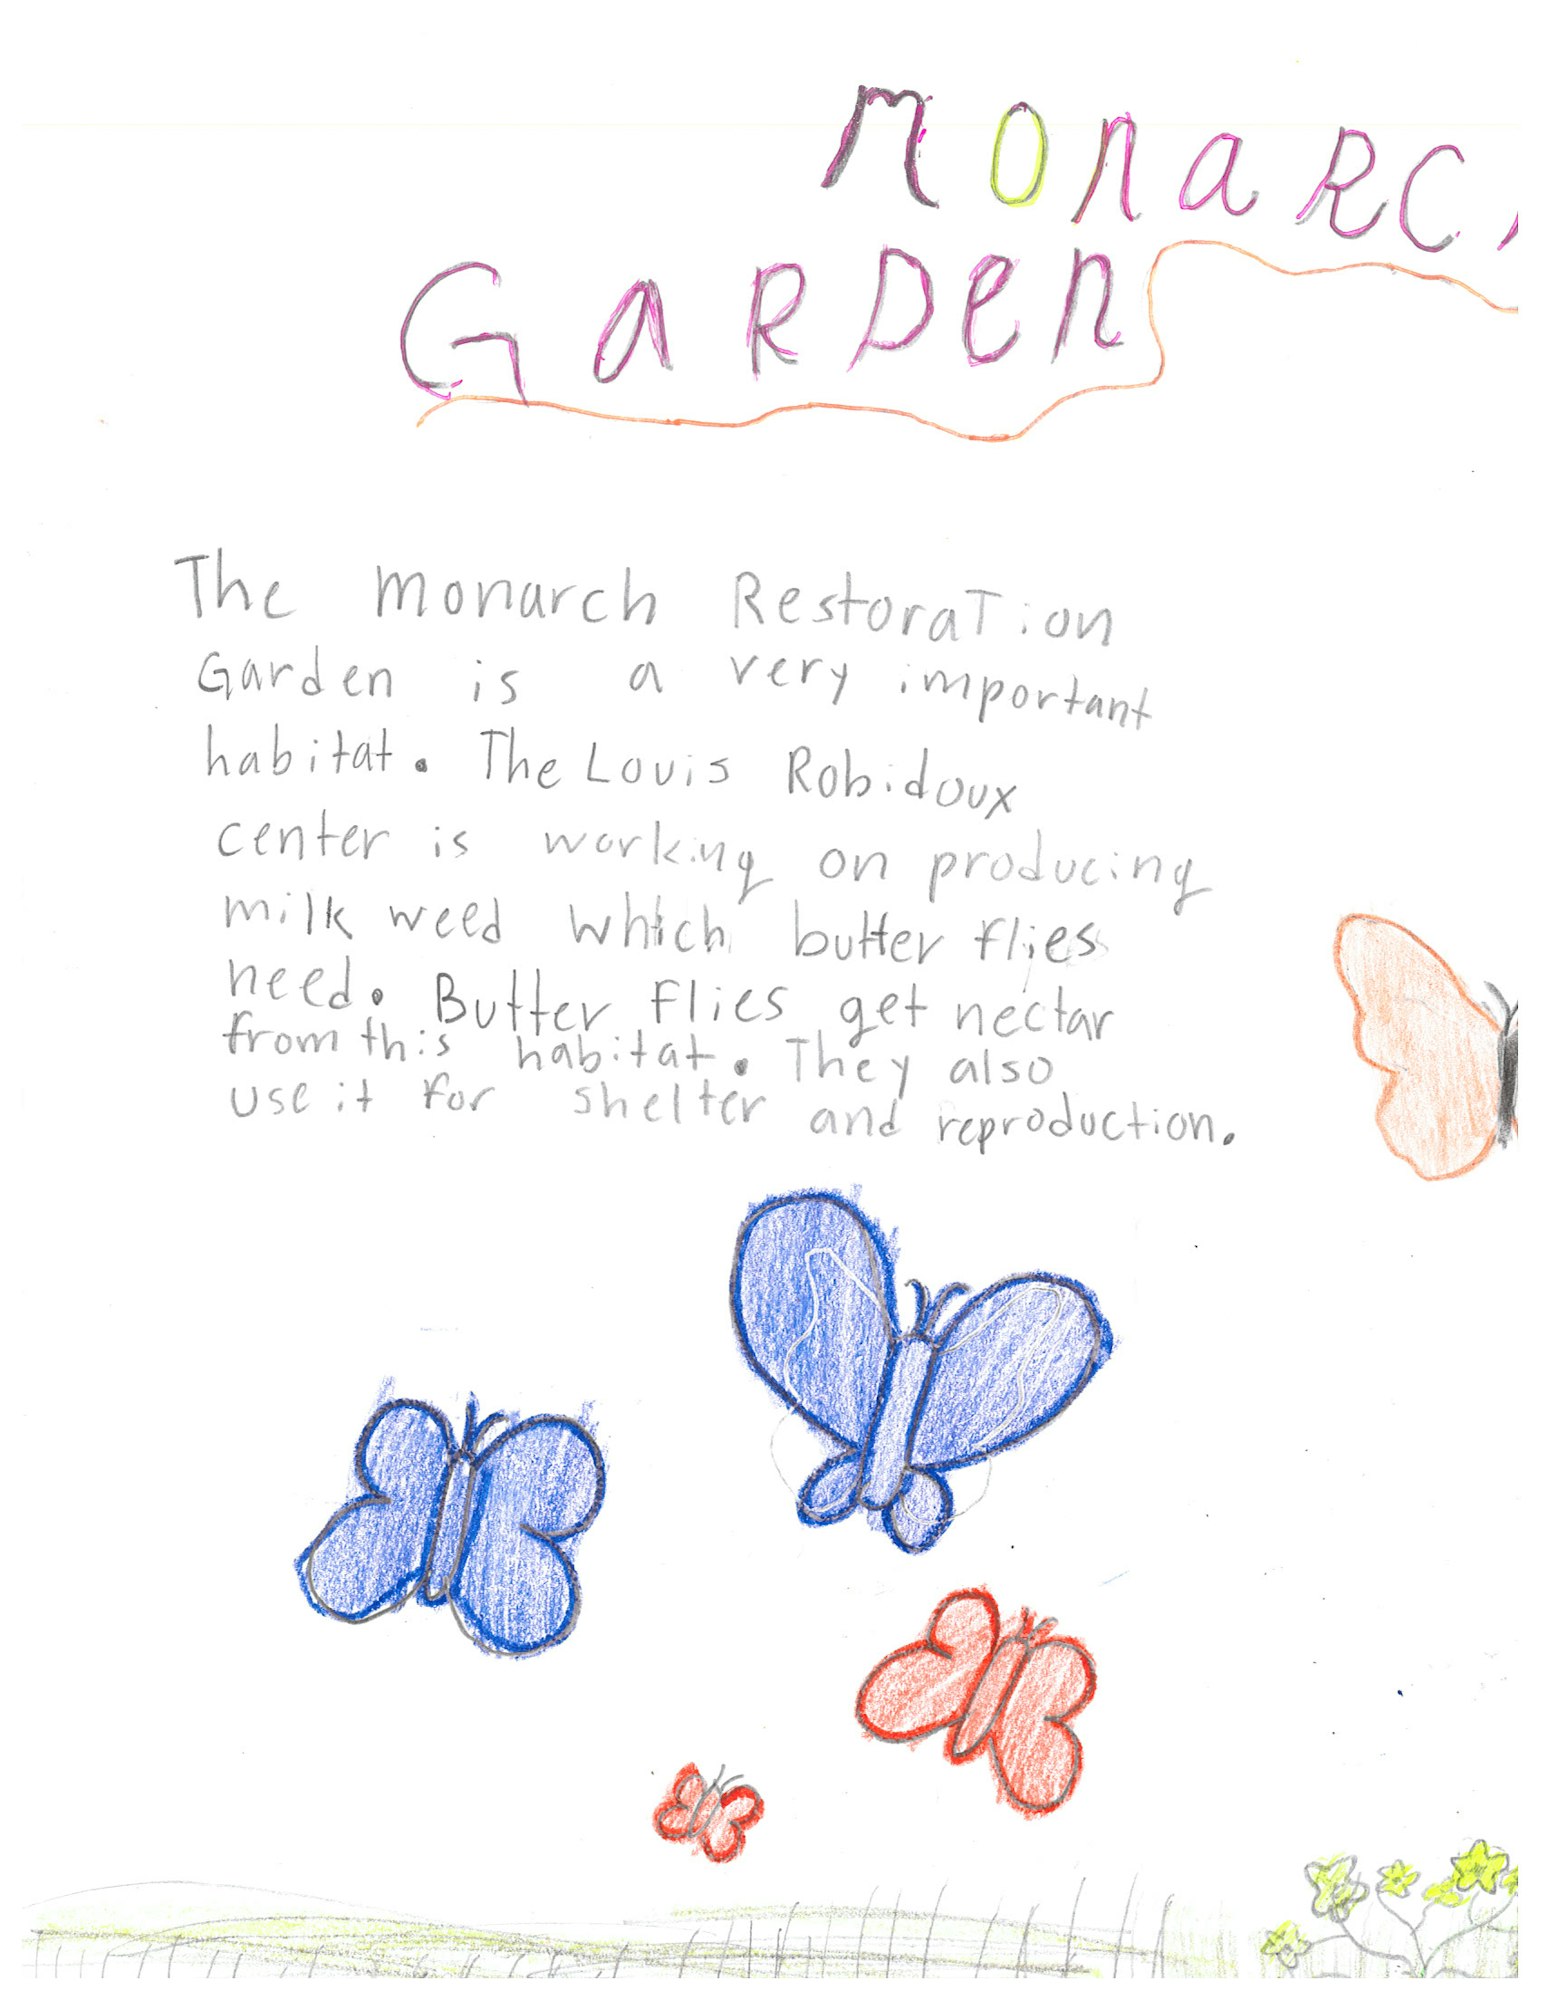 MonaRC
GaRDen
The monarch RestoraTion
Garden is a very important
habitat. The Louis Robidoux
center is working on producing
milk weed which butter flies
need. Butter flies get nectar
from this habitat. They also
use it for shelter and reproduction.